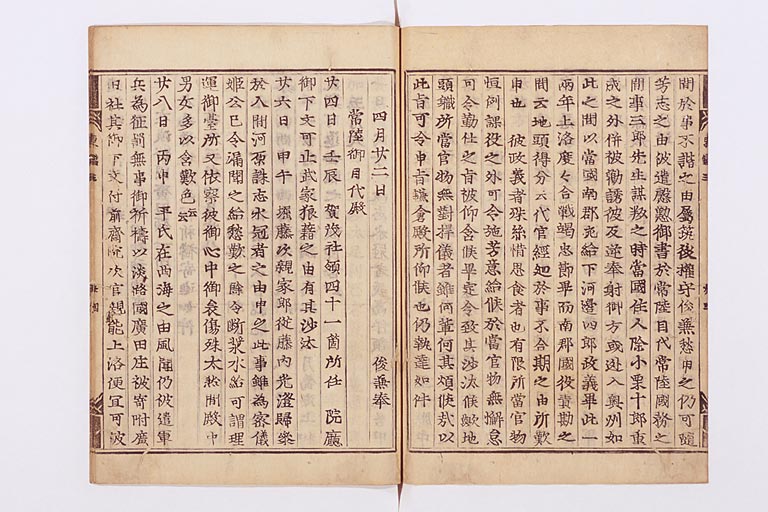 間於事不諧之由属筑後權守俊兼愁申之仍可隨
芳志之由被遣慇懃御書於常陸目代常陸國務之
間事三郎先生謀叛之時當國住人除小栗十郎重
成之外併被勧誘彼反逆奉射御方或逃入奥州如
此之間以當國南郡宛給下河邊四郎政義畢此一
兩年上洛度々合戰竭忠節畢而南郡國役責勘之
間云地頭得分云代官經廻於事不合期之由所歎
申也 彼政義者殊糸惜思食者也有限所當官物
恒例課役之外可令施芳意給候於當官物無懈怠
可令勤仕之旨被仰含候畢定令致其沙汰候歟地
頭職所當官物無對捍儀者雖何輩何其煩候哉以
此旨可令申旨鎌倉殿所仰候也仍執達如件
四月廿二日 俊兼奉
常陸御目代殿
廿四日 壬辰 賀茂社領四十一箇所任 院廳
御下文可止武家狼藉之由有其沙汰
廿六日 甲午 堀藤次親家郎從藤内光澄歸參
於入間河原誅志水冠者之由申之此事雖為密儀
姫公已令漏聞之給愁歎之餘令断漿水給可謂理
運御臺所又依察彼御心中御哀傷殊太然間殿中
男女多以含歎色云云
廿八日 丙申 平氏在西海之由風聞仍被遣軍
兵為征罰無事御祈禱以淡路國廣田庄被寄附廣
田社其御下文付前齋院次官親能上洛便宜可被